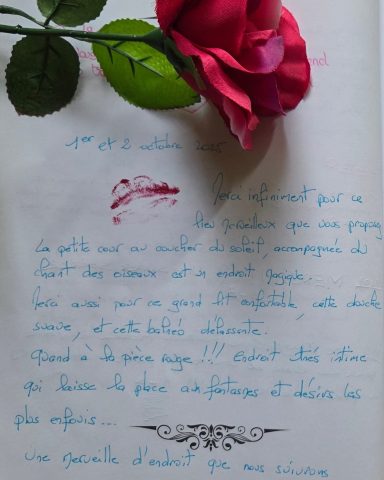 1er et 2 octobre 2025
Merci infiniment pour ce
lieu merveilleux que vous proposez
La petite cour au coucher du soleil, accompagnée du
chant des oiseaux est un endroit magique.
Merci aussi pour ce grand lit confortable, cette douche
suave, et cette balnéo délassante.
Quand à la pièce rouge !!! Endroit très intime
qui laisse la place aux fantasmes et désirs les
plus enfouis...
Une merveille d'endroit que nous suivrons